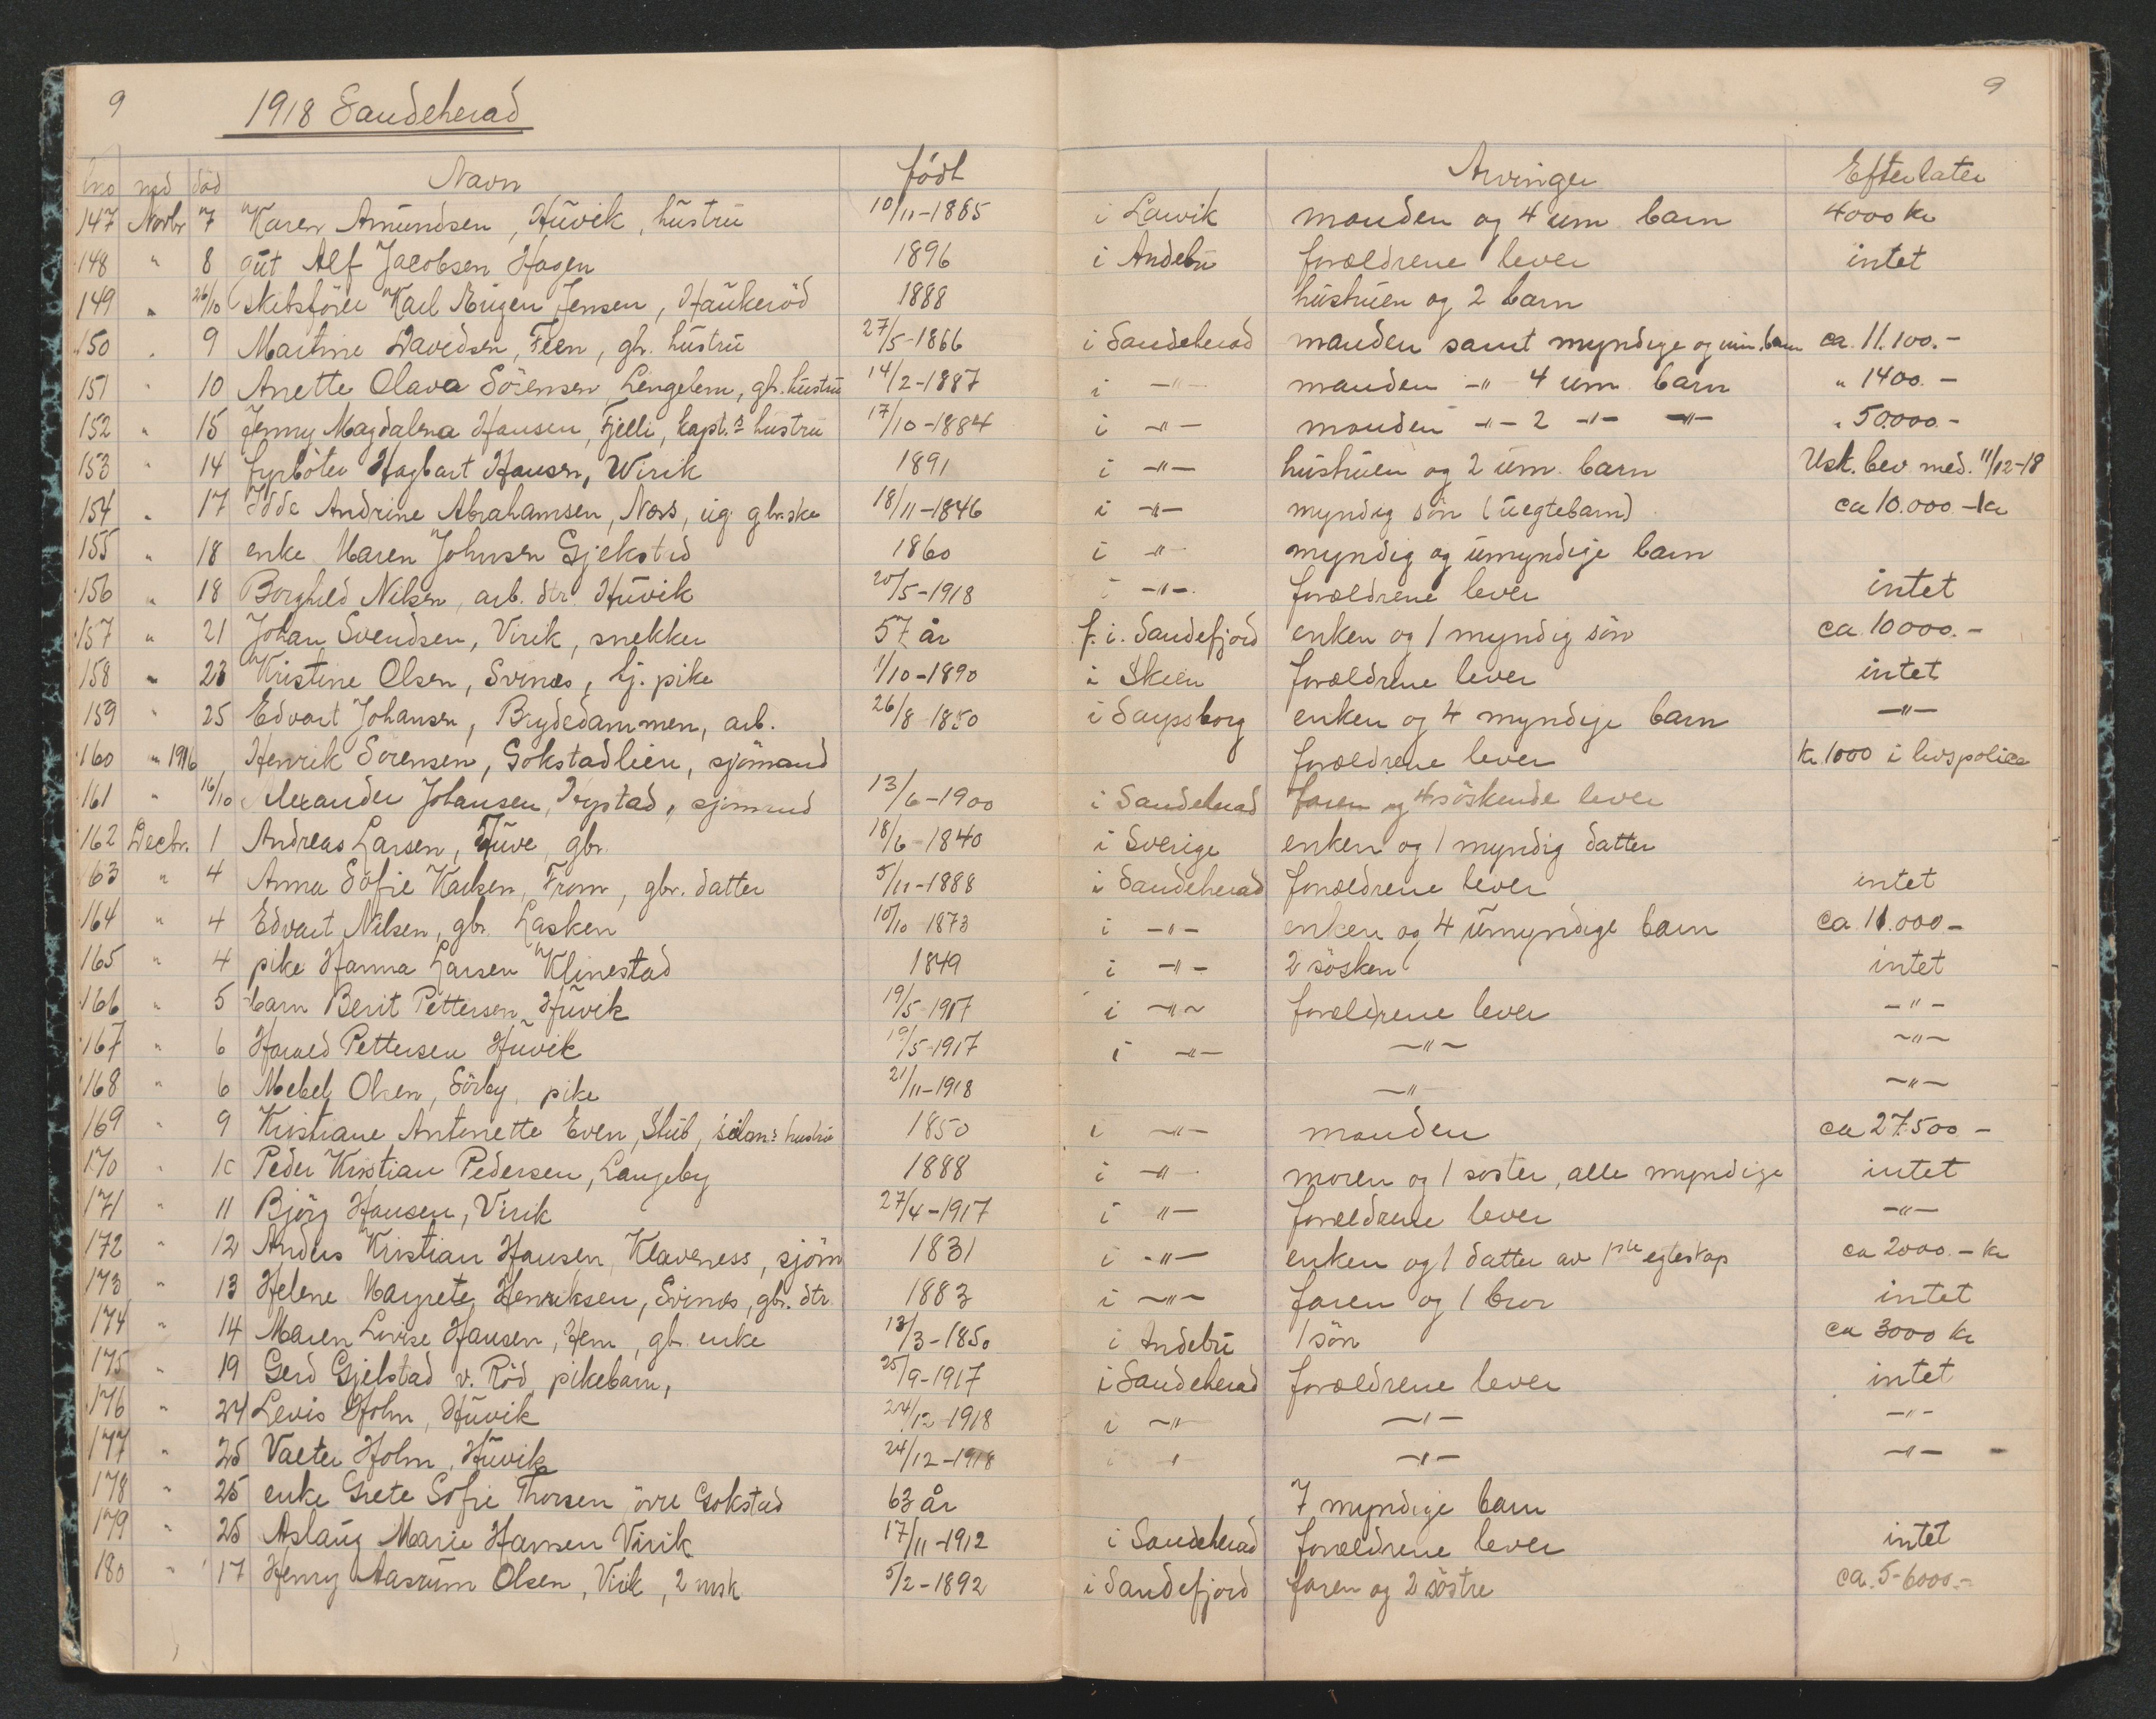 9 1918 Sandeherad 9
lno md död Navn födt Arvinger Efterlater
147 Novbr 7 Karen Amundsen, Huvik, hustru 10/11-1865 i Larvik manden og 4 um barn 4000 kr
148 " 8 gut Alf Jacobsen Hagen 1896 i Andebu forældrene lever intet
149 " 26/10 skibsförer Karl Eugen Jensen, Haukeröd 1888 hustruen og 2 barn
150 " 9 Martine Davidsen, Feen, gbr. hustru 27/5-1866 i Sandeherad manden samt myndige og um. barn ca. 11.100.-
151 " 10 Anette Olava Sörensen, Lingelem, gbr. hustru 14/2-1887 i -"- manden -"- 4 um. barn " 1400.-
152 " 15 Jenny Magdalena Hansen, Fjelli, kapt.s hustru 17/10-1884 i -"- manden -"- 2 -"- -"- " 50.000.-
153 " 14 fyrböter Hagbart Hansen, Wirik 1891 i -"- hustruen og 2 um. barn Usk. bev. med. 11/12-18
154 " 17 Andrine Abrahamsen, Næs, ug. gbrske 18/11-1846 i -"- myndig sön (uegtebarn) ca 10.000 - kr
155 " 18 enke Maren Johnsen Gjekstad 1860 i -"- myndig og umyndige barn
156 " 18 Borghild Nilsen, arb. dtr. Huvik 20/5-1918 i -"- forældrene lever intet
157 " 21 Johan Svendsen, Virik, snekker 57 år f. i. Sandefjord enken og 1 myndig sön ca 10000.-
158 " 23 Kristine Olsen, Svinæs, tj. pike 1/10-1890 i Skien forældrene lever intet
159 " 25 Edvart Johansen, Brydedammen, arb. 26/8-1850 i Sarpsborg enken og 4 myndige barn -"-
160 " 1916 Henrik Sörensen, Gokstadlien, sjömand forældrene lever kr. 1000 i livspolice
161 " 16/10 Alexander Johansen, sjömand 13/6-1900 i Sandeherad faren og 4 söskende lever
162 Decbr. 1 Andreas Larsen, Tuve, gbr. 18/6-1840 i Sverige enken og 1 myndig datter
163 " 4 Anna Sofie Karlsen, From, gbr. datter 5/11-1888 i Sandeherad forældrene lever intet
164 " 4 Edvart Nilsen, gbr. Lasken 10/10-1873 i -"- enken og 4 umyndige barn ca. 11.000-
165 " 4 pike Hanna Larsen Klinestad 1849 i -"- 2 sösken intet
166 " 5 barn Berit Pettersen Huvik 19/5-1917 i -"- forældrene lever -"-
167 " 6 Harald Pettersen Huvik 19/5-1917 i -"- -"- -"-
168 " 6 Mebel Olsen, Sörby, pike 21/11-1918 -"- -"-
169 " 9 Kristiane Antonette Even, Stub, hustru 1850 i -"- manden ca 27500-
170 " 10 Peder Kristian Pedersen, Langeby 1888 i -"- moren og 1 söster, alle myndige intet
171 " 11 Björg Hansen, Virik 27/4-1917 i -"- forældrene lever -"-
172 " 12 Anders Kristian Hansen, Klaveness, sjöm 1831 i -"- enken og 1 datter av 1ste egteskap ca 2000.- kr
173 " 13 Helene Margrete Henriksen, Svinæs, gbr. dtr. 1883 i -"- faren og 1 bror intet
174 " 14 Maren Lovise Hansen, Hem, gbr. enke 13/3-1850 i Andebu 1 sön ca 3000 kr
175 " 19 Gerd Gjelstad v. Röd, pikebarn, 25/9-1917 i Sandeherad forældrene lever intet
176 " 24 Levis Holm, Huvik 24/12-1918 i -"- -"- -"-
177 " 25 Valter Holm, Huvik 24/12-1918 i " -"- -"-
178 " 25 enke Grete Sofie Thorsen övre Gokstad 63 år 7 myndige barn
179 " 25 Aslaug Marie Hansen Virik 17/11-1912 i Sandeherad forældrene lever intet
180 " 17 Henry Aasrum Olsen, Virik, 2 msk 5/2-1892 i Sandefjord faren og 2 söstre ca. 5-6000.-